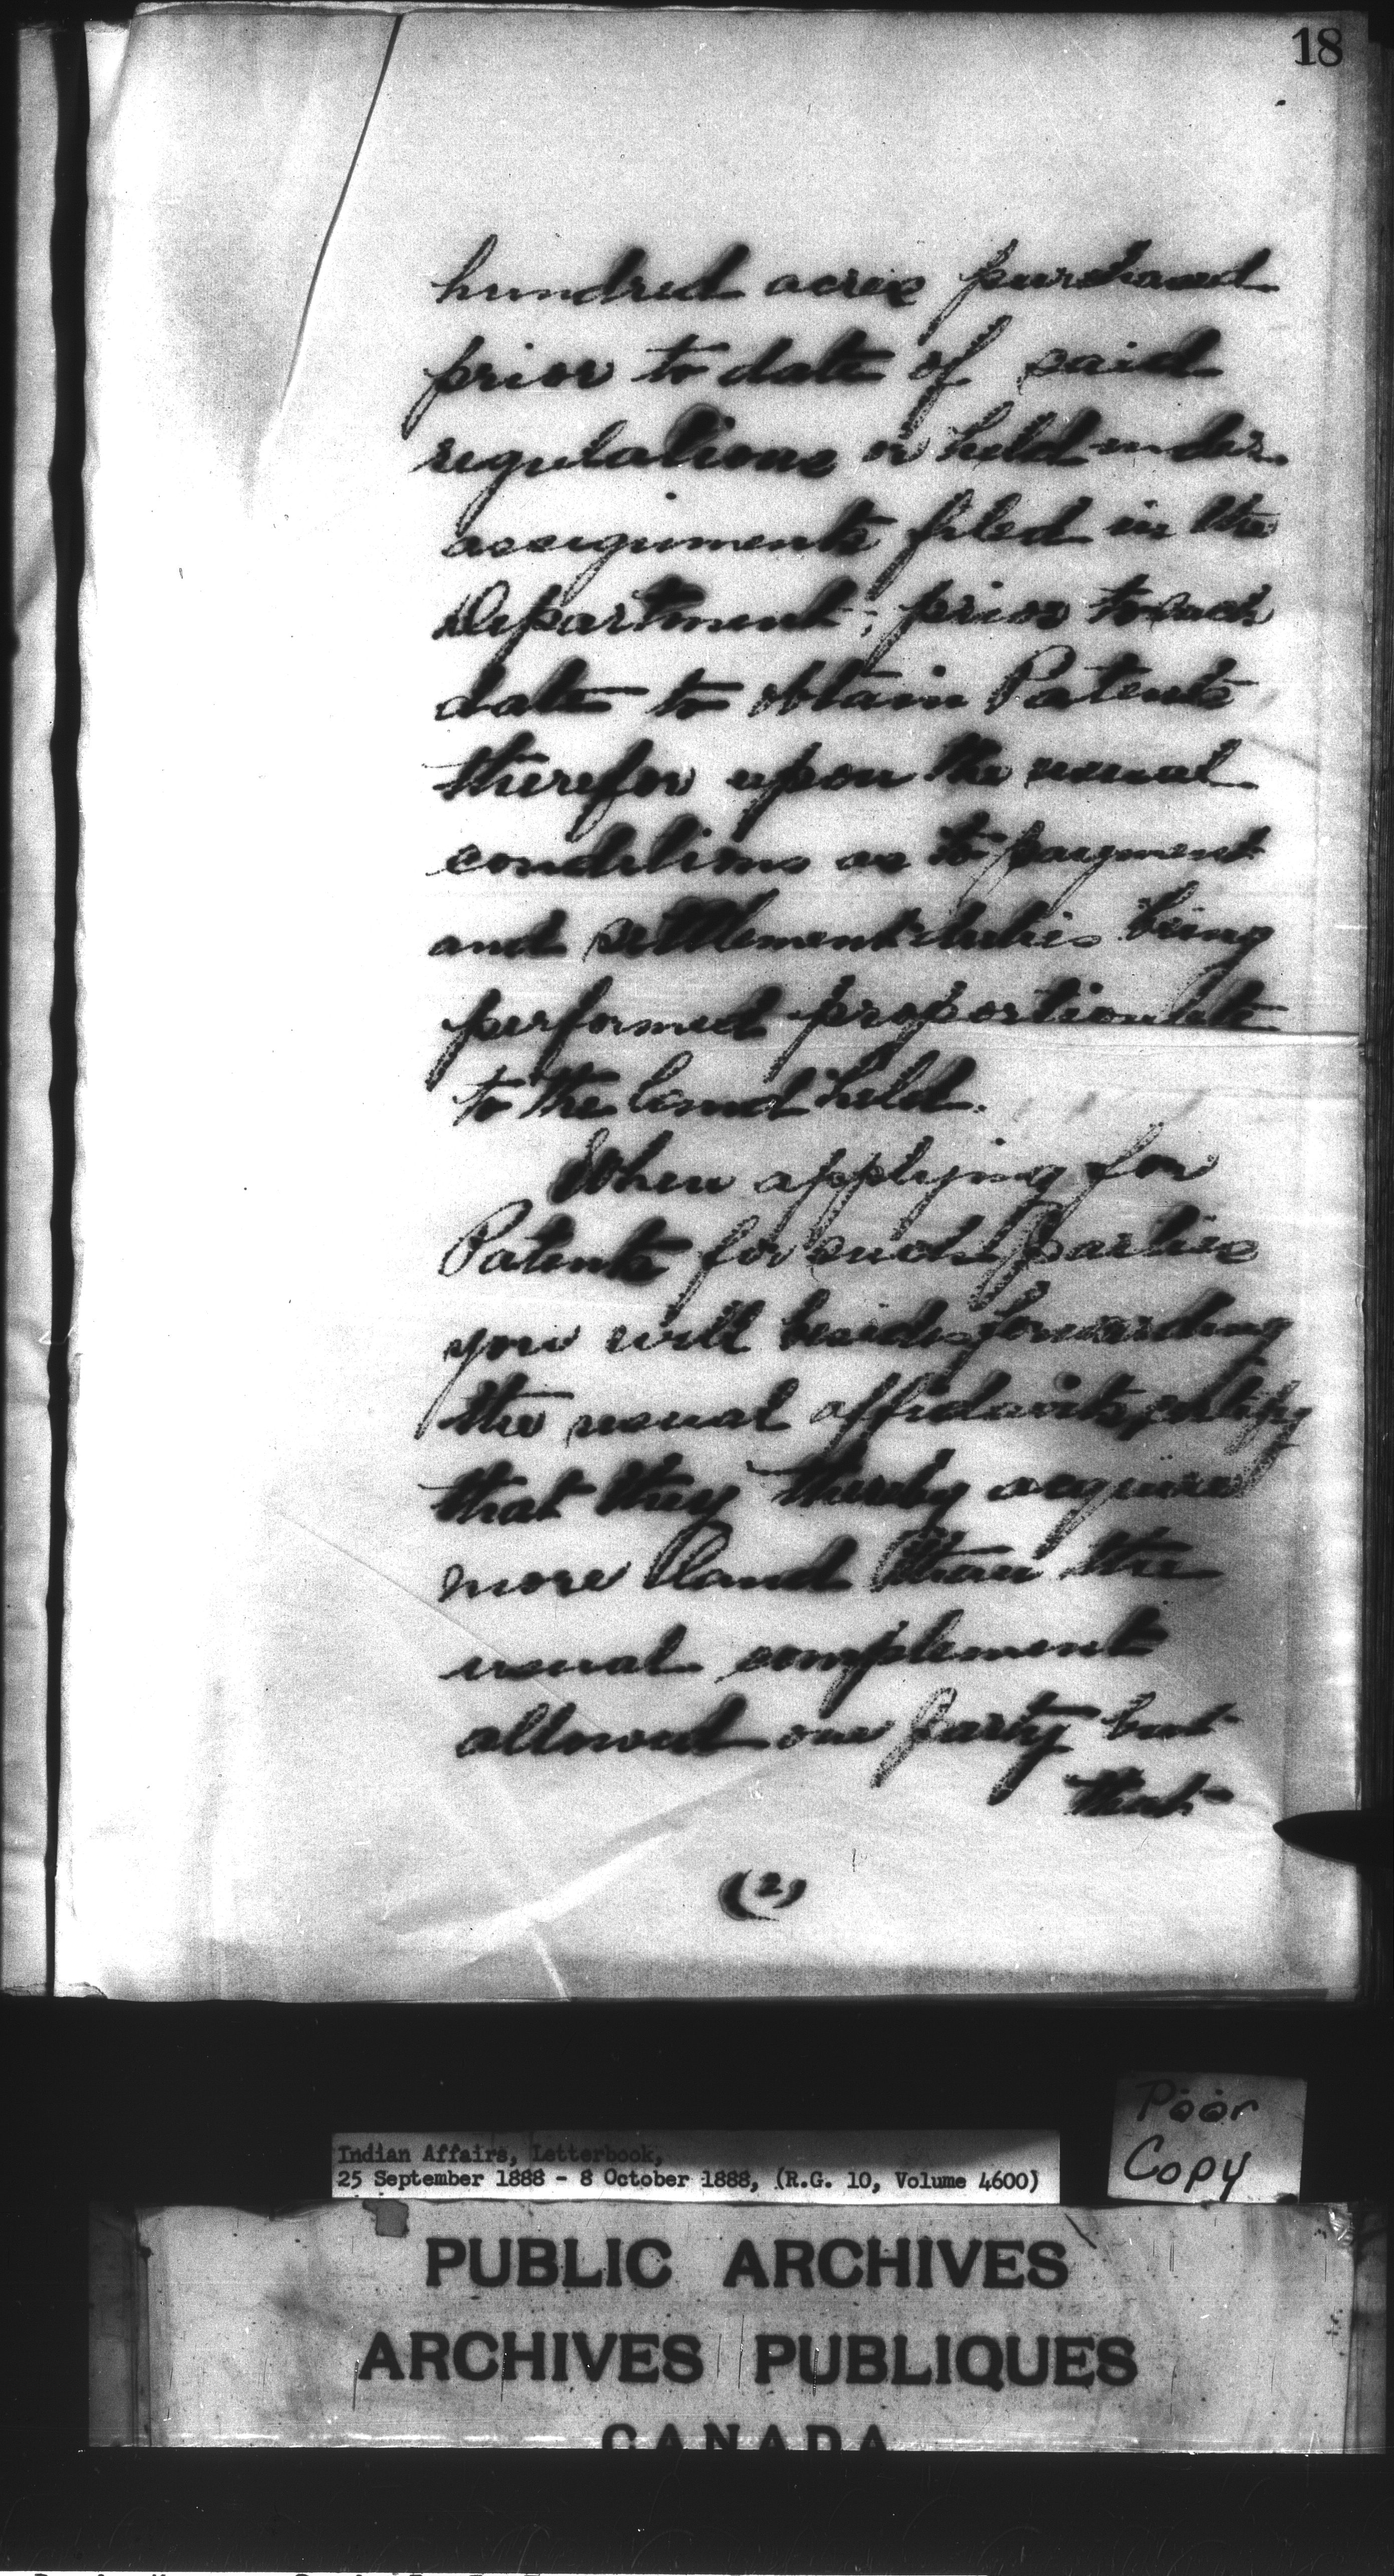 18
hundred acres purchased
prior to date of said
regulations or held under
assignments filed in the
Department; prior to such
date to obtain Patents
therefor upon the usual
conditions as to payment
and settlement duties being
performed proportionate
to the land held.
When applying for
Patents for such parties
you will besides forwarding
the usual affidavits, certify
that they thereby acquire
more land than the
usual complement
allowed one party but
that
(2)
Poor
Copy
Indian Affairs, Letterbook,
25 September 1888 - 8 October 1888, (R.G. 10, Volume 4600)
PUBLIC ARCHIVES
ARCHIVES PUBLIQUES
CANADA